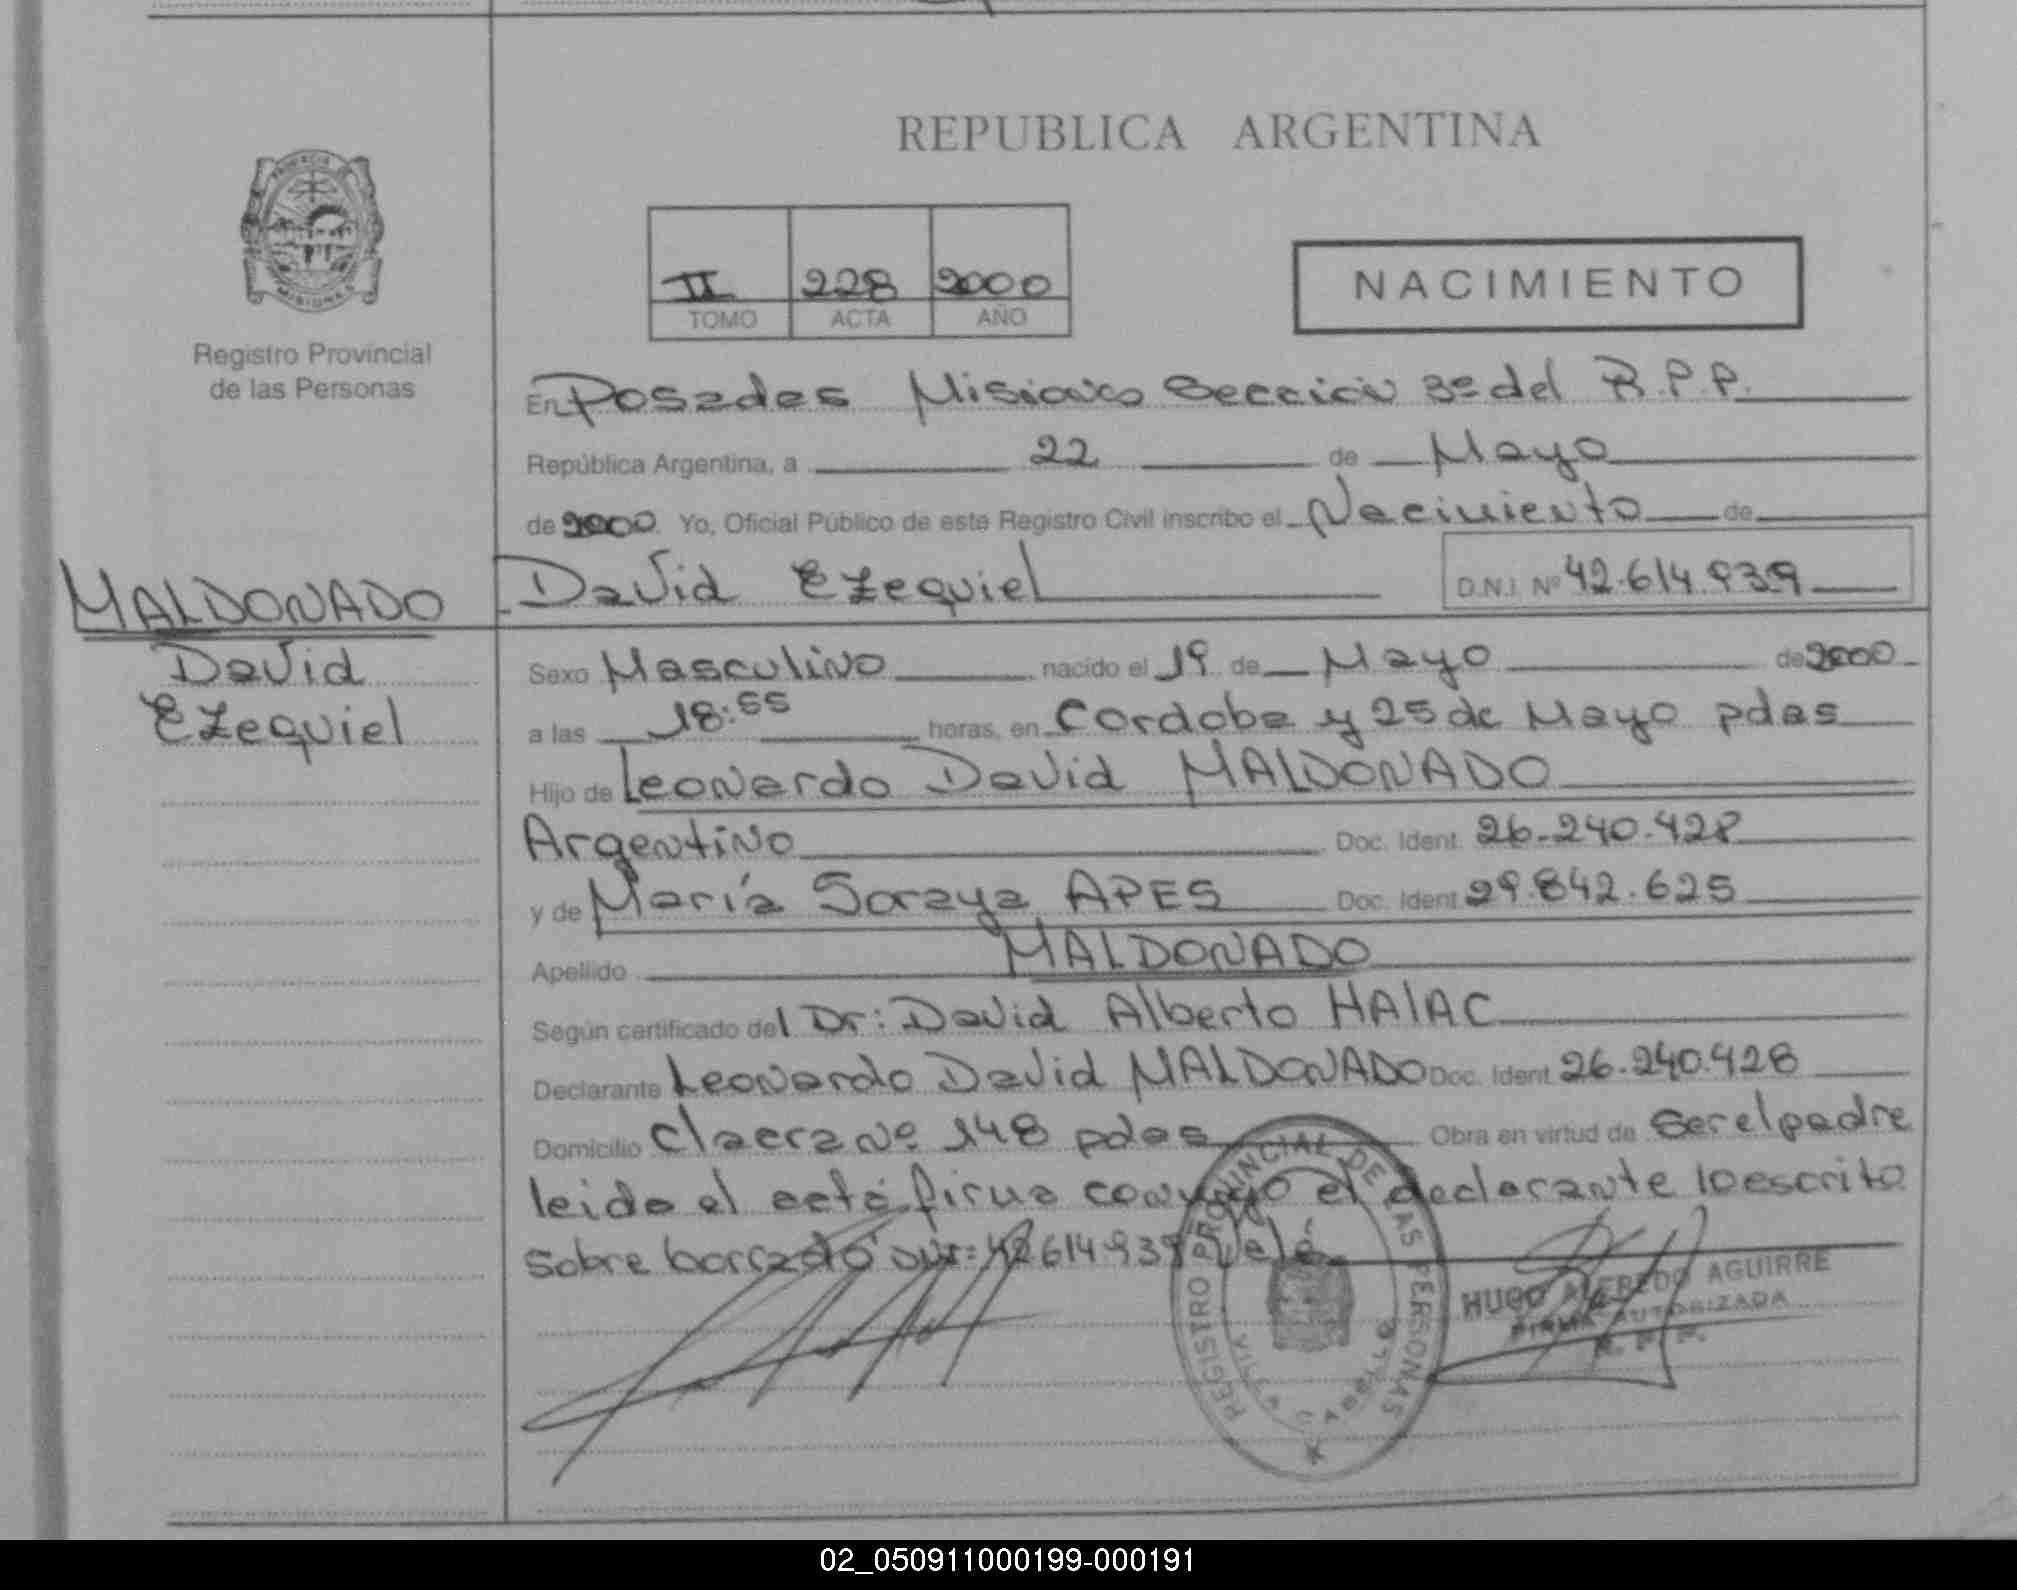 REPUBLICA ARGENTINA
PROVINCIA
MISIONES
Registro Provincial
de las Personas
II 228 2000
TOMO ACTA AÑO
NACIMIENTO
En Posadas Misiones Sección 3º del R.P.P.
República Argentina, a 22 de Mayo
de 2000 Yo, Oficial Público de este Registro Civil inscribo el Nacimiento de
David Ezequiel D.N.I. Nº 42.614.939
MALDONADO
David
Ezequiel
Sexo Masculino nacido el 19 de Mayo de 2000
a las 18:55 horas, en Cordoba y 25 de Mayo pdas
Hijo de Leonardo David MALDONADO
Argentino Doc. Ident. 26-240.428
y de María Soraya APES Doc. Ident. 29.842.625
Apellido MALDONADO
Según certificado del Dr: David Alberto HALAC
Declarante Leonardo David MALDONADO Doc. Ident. 26.240.428
Domicilio Claera Nº 148 pdas Obra en virtud de ser el padre
leida el acta firma conmigo el declarante lo escrito
sobre borrado 42614.939 Vale
REGISTRO PROVINCIAL DE LAS PERSONAS
VILLA CABELLO
HUGO ALFREDO AGUIRRE
FIRMA AUTORIZADA
R. P. P.
02_050911000199-000191